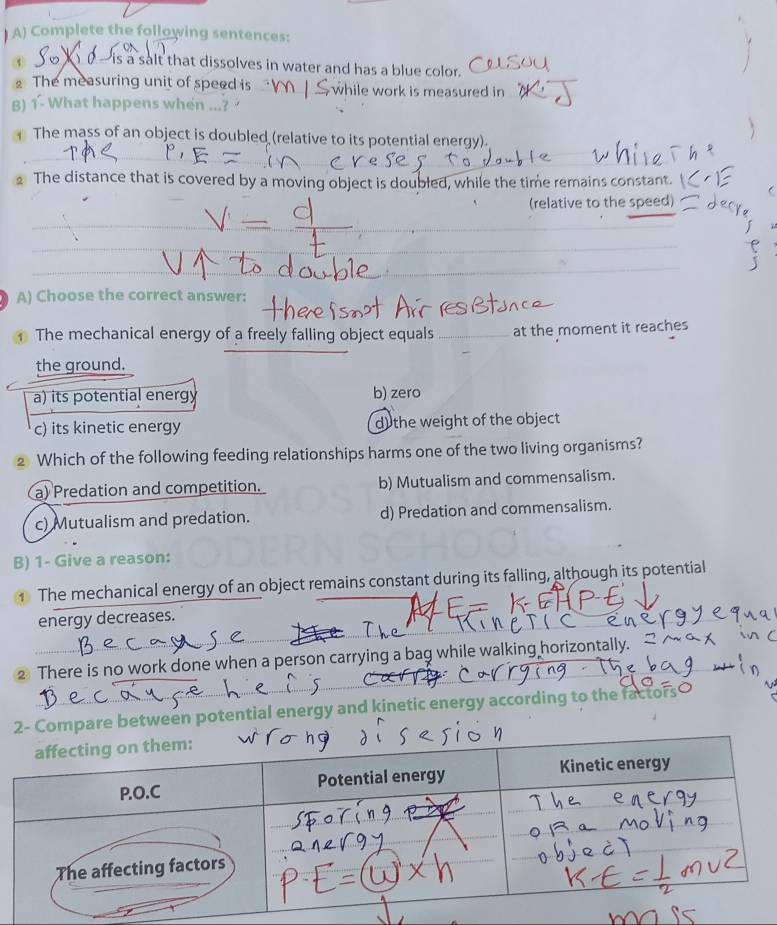 A) Complete the following sentences:
1 is a salt that dissolves in water and has a blue color.
2 The measuring unit of speed is m/s while work is measured in J
B) 1- What happens when ...?
1 The mass of an object is doubled (relative to its potential energy).
The P.E = in creses to double while The
2 The distance that is covered by a moving object is doubled, while the time remains constant. K.E
(relative to the speed) = decreses
V = d/t
V↑ to double
A) Choose the correct answer:
there isnot Air resistance
1 The mechanical energy of a freely falling object equals at the moment it reaches
the ground.
a) its potential energy b) zero
c) its kinetic energy d) the weight of the object
2 Which of the following feeding relationships harms one of the two living organisms?
a) Predation and competition. b) Mutualism and commensalism.
c) Mutualism and predation. d) Predation and commensalism.
B) 1- Give a reason:
1 The mechanical energy of an object remains constant during its falling, although its potential
energy decreases. M.E = K.E↑+P.E↓
Because The Kinetic energy equal
2 There is no work done when a person carrying a bag while walking horizontally.
Because he is carrying The bag in
d=0
2- Compare between potential energy and kinetic energy according to the factors
affecting on them: wrong disesion
P.O.C Potential energy Kinetic energy
The affecting factors
storing
energy
P.E = W x h
The energy
of a moving
object
K.E = 1/2 mv2
mass